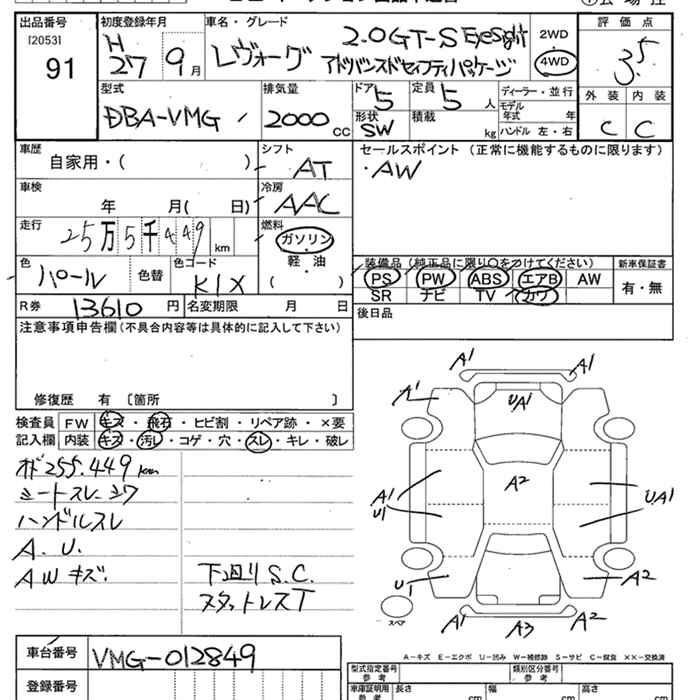 出品番号
[2053]
91
初度登録年月
H
27 9月
車名・グレード
レヴォーグ
2.0GT-S EyeSight
アドバンスドセイフティパッケージ
2WD
4WD
評価点
3.5
外装 内装
C C
型式
DBA-VMG
排気量
2000 CC
ドア 5
定員 5 人
形状 SW
積載 kg
ディーラー・並行
モデル年式 年
ハンドル 左・右
車歴
自家用・( )
シフト
AT
セールスポイント(正常に機能するものに限ります)
・AW
車検
年 月( 日)
冷房
AAC
走行
25万5千449 km
燃料
ガソリン
軽・油
( )
色
パール 色替
色コード
K1X
装備品(純正品に限り○をつけてください)
PS PW ABS エアB AW
SR ナビ TV カワ
新車保証書
有・無
R券 13610円
名変期限 月 日
後日品
注意事項申告欄(不具合内容等は具体的に記入して下さい)
修復歴 有 〔箇所 〕
検査員 FW キズ・飛石・ヒビ割・リペア跡・×要
記入欄 内装 キズ・汚レ・コゲ・穴・スレ・キレ・破レ
オド255.449km
シートスレ シワ
ハンドルスレ
A.U.
AWキズ
下廻りS.C.
スタットレスT
A1 A1
A1 UA1
A2
A1
U1
UA1
U1 A2
A1 A3 A2
スペア
A-キズ E-エクボ U-凹み W-補修跡 S-サビ C-腐食 ××-交換済
車台番号 VMG-012849
登録番号
型式指定番号
参考
類別区分番号
参考
車庫証明用
参考
長さ cm 幅 cm 高さ cm